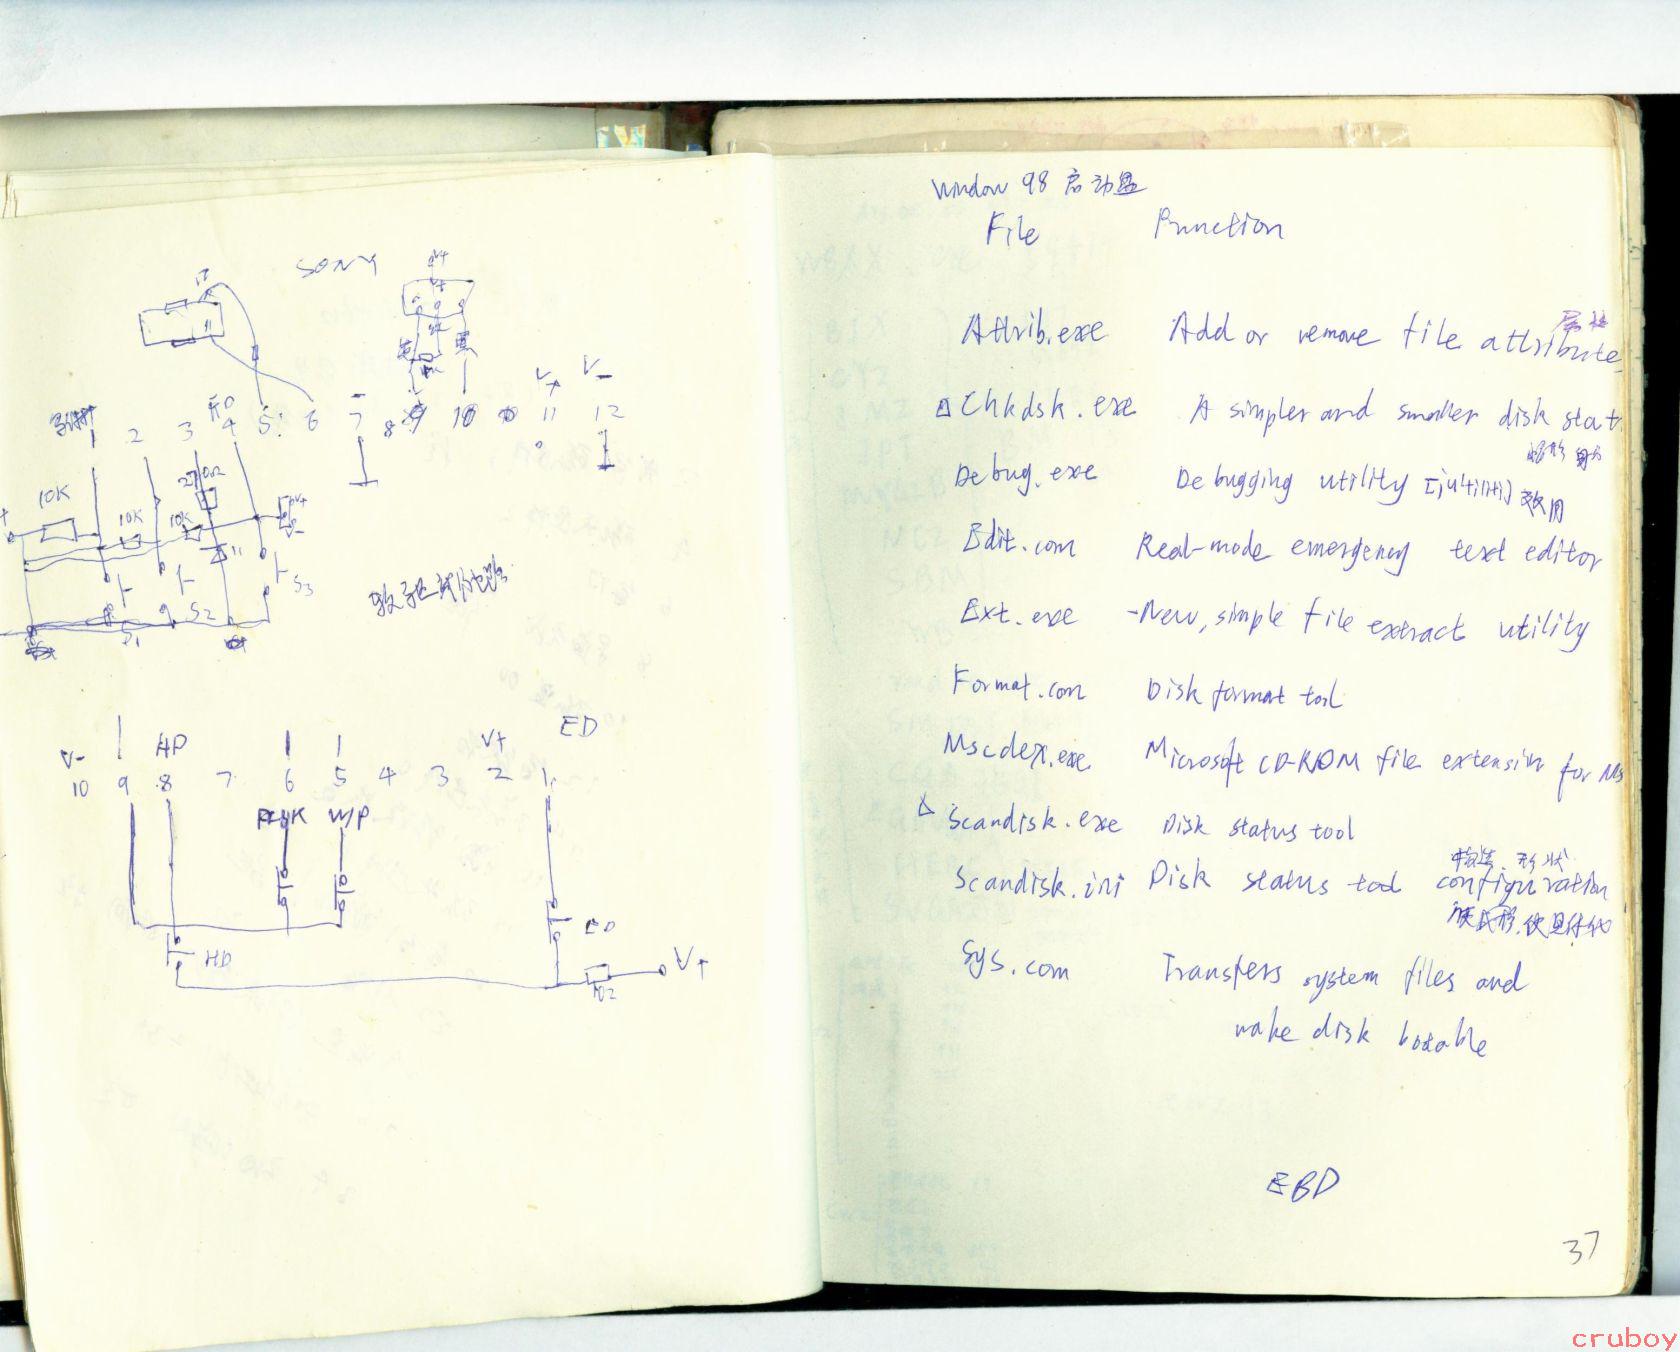 SONY
V+ V-
2 3 4 5 6 7 8 9 10 11 12
10K
10K 10K
S1 S2 S3
ED
V- HD V+
10 9 8 7 6 5 4 3 2 1
W/P
ED
HD
V+
Window 98 启动盘
File Function
属性
Attrib.exe Add or remove file attribute
Chkdsk.exe A simpler and smaller disk stat
Debug.exe Debugging utility 效用
Edit.com Real-mode emergency text editor
Ext.exe New, simple file extract utility
Format.com Disk format tool
Mscdex.exe Microsoft CD-ROM file extension for Ms
Scandisk.exe Disk status tool
构造 形状
Scandisk.ini Disk status tool configuration
Sys.com Transfers system files and
make disk bootable
EBD
37
cruboy